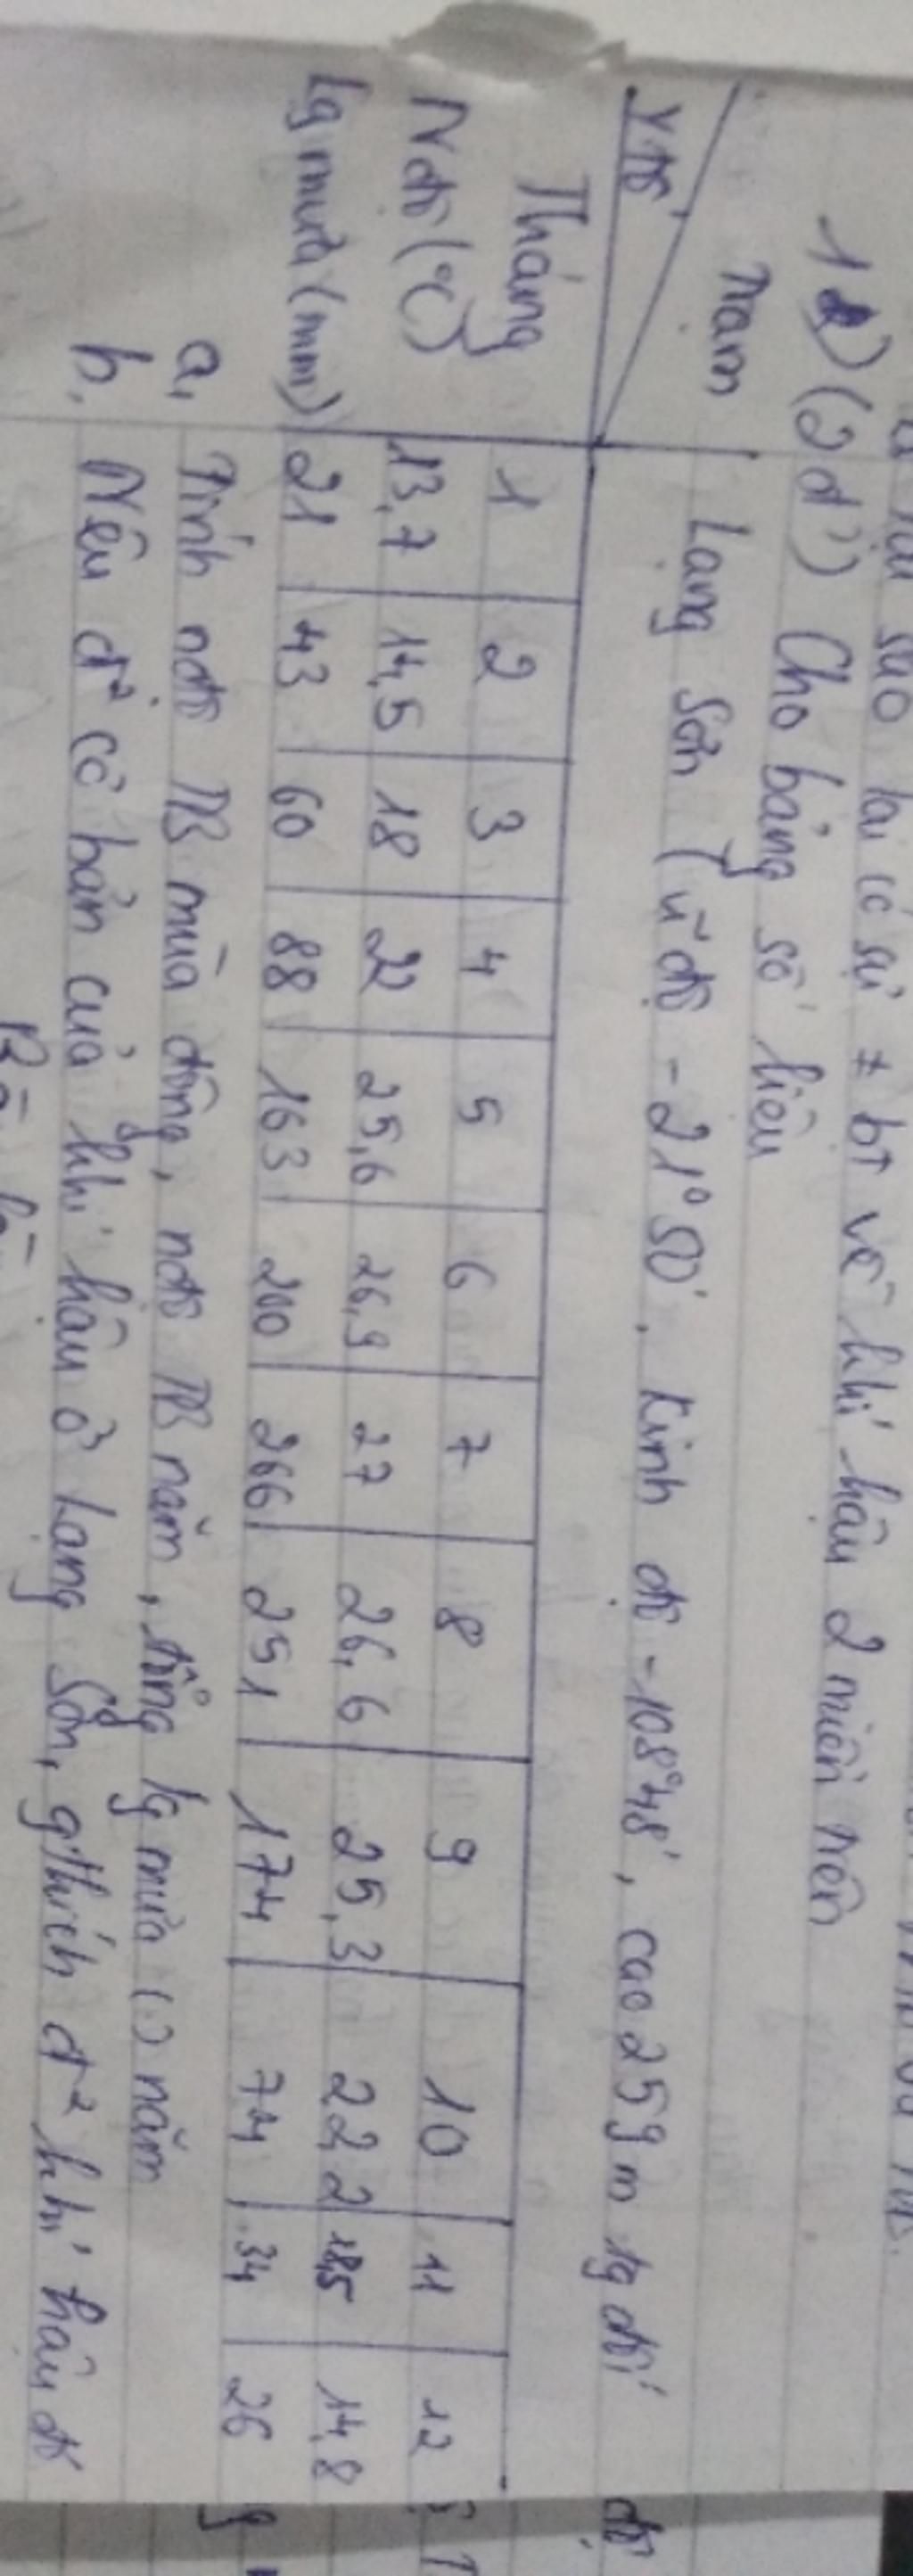 lại có sự ≠ bt về khí hậu 2 miền nên
1) (2đ') Cho bảng số liệu
trạm Lạng Sơn (vĩ độ - 21°50'. Kinh độ - 108°48', cao 259m
Ytố
Tháng 1 2 3 4 5 6 7 8 9 10 11 12
Nđộ (°C) 13,7 14,5 18 22 25,6 26,9 27 26,6 25,3 22,2 18,5 14,8
Lg mưa (mm) 21 43 60 88 163 200 266 251 174 74 34 26
a, Tính nđộ TB mùa đông, nđộ TB năm, tổng lg mưa () năm
b, Nêu đ² cơ bản của khí hậu ở Lạng Sơn, gthích đ² khí hậu đó